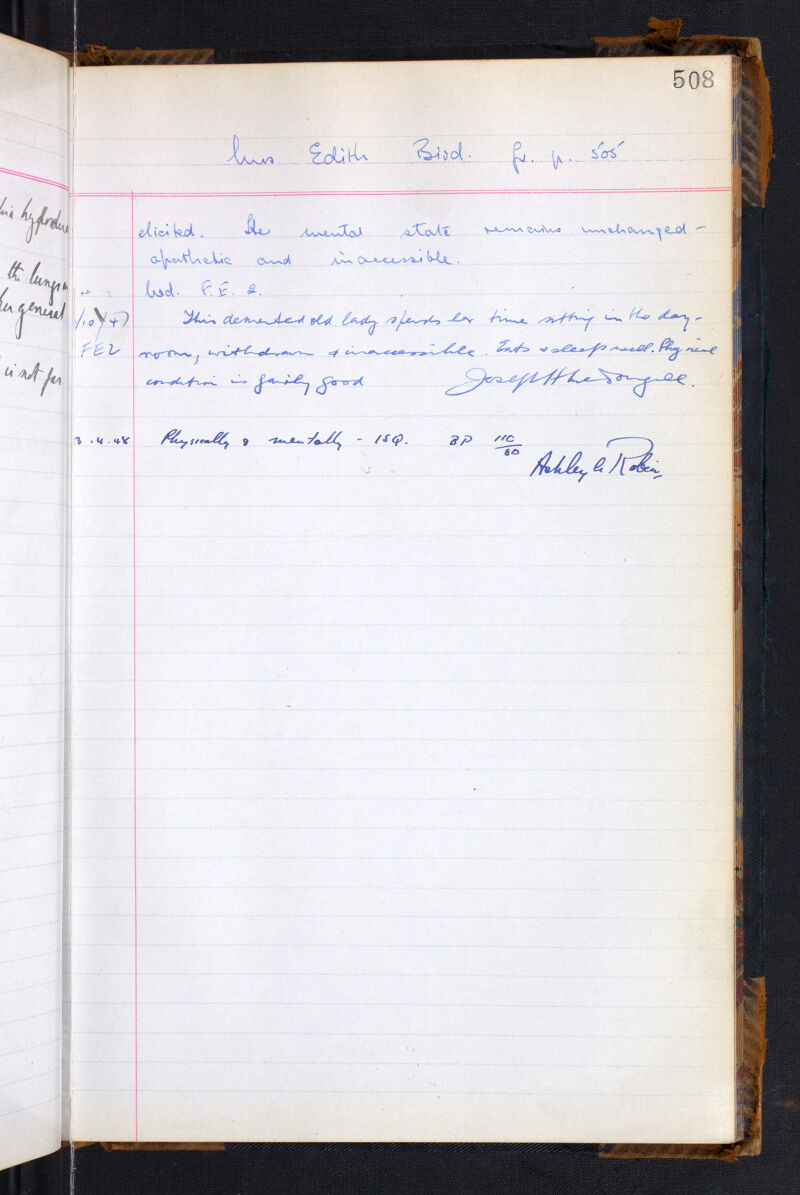 508
Mrs Edith Bird. fr. p. 505
elicited. Her mental state remains unchanged -
apathetic and inaccessible.
Wd. F.E. 2.
/10/47 This demented old lady spends her time sitting in the day-
FE2 room, withdrawn & inaccessible. Eats & sleeps well. Physical
condition is fairly good Joseph H MacDougall.
.4.48 Physically & mentally - ISQ. BP 110/60
Ashley A Robin
the lungs
her general
is not far